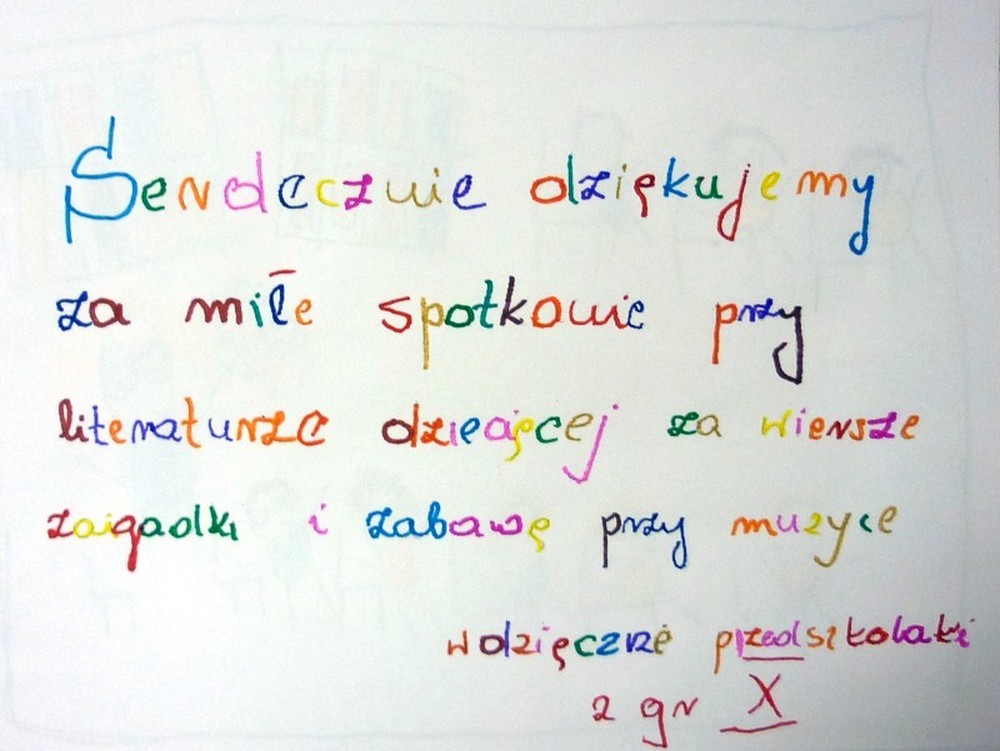 Serdecznie dziękujemy
za miłe spotkowie przy
literaturze dziecięcej za wiersze
zaigadki i zabawę przy muzyce
wdzięczne przedszkolaki
z gr X